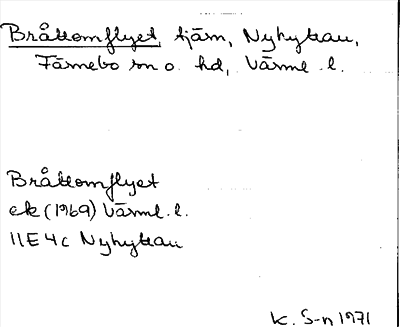 Bråttomflyet, tjärn, Nyhyttan,
Färnebo sn o. hd, Värml. l.
Bråttomflyet
ek (1969) Värml. l.
11E 4c Nyhyttan
K. S-n 1971